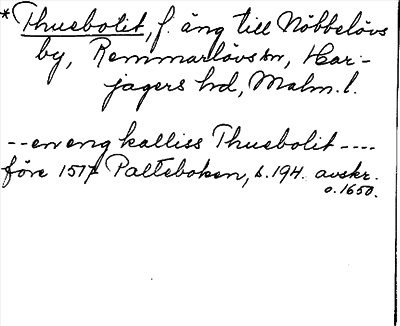 *Thuebolit, f. äng till Nöbbelövs
by, Remmarlövs sn, Har-
jagers hd, Malm. l.
-- en eng kalliss Thuebolit ----
före 1517 Palteboken, s. 194. avskr.
o. 1650.